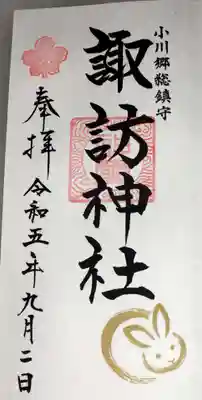 小川郷総鎮守
諏訪神社
奉拝 令和五年九月二日